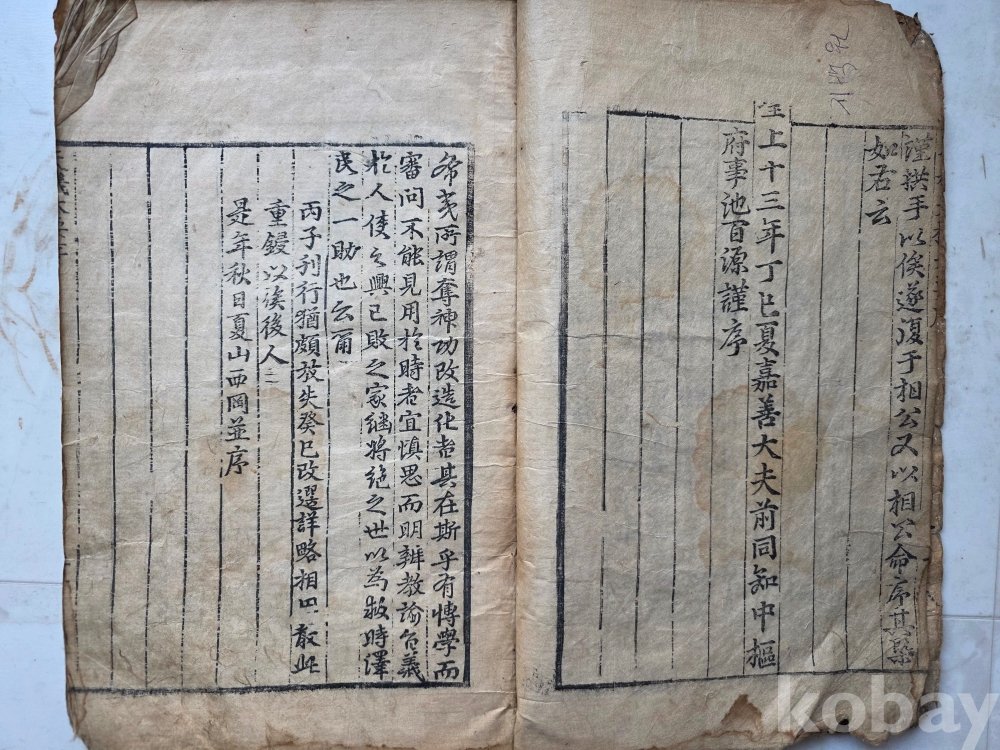 謹拱手以俟遂復于相公又以相公命序其槩
如君云
上十三年丁巳夏嘉善大夫前同知中樞
府事池百源謹序
所謂奪神功改造化者其在斯乎有博學而
審問不能見用於時者宜慎思而明辨教諭
於人使之興已敗之家繼將絶之世以為救時澤
民之一助也云爾
丙子刊行猶頗放失癸巳改選詳略相
重鋟以俟後人
是年秋日夏山西岡並序
kobay